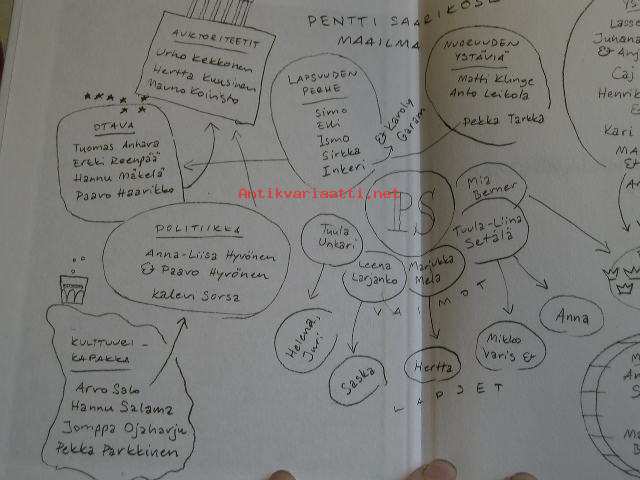 PENTTI SAARIKOSK
MAAILMA
AUKTORITEETIT
Urho Kekkonen
Hertta Kuusinen
Mauno Koivisto
OTAVA
Tuomas Anhava
Erkki Reenpää
Hannu Mäkelä
Paavo Haavikko
LAPSUUDEN
PERHE
Simo
Elli
Ismo
Sirkka
Inkeri
& Karoly
Garam
NUORUUDEN
YSTÄVIÄ
Matti Klinge
Anto Leikola
Pekka Tarkka
YS
Lasse
Juhana
& Anj
Caj
Henrik
E
Kari
MA
&
Antikvariaatti.net
PS
POLITIIKKA
Anna-Liisa Hyvönen
& Paavo Hyvönen
Kalevi Sorsa
Tuula
Unkari
Leena
Larjanko
Marjukka
Mela
Tuula-Liina
Setälä
Mia
Berner
VAIMOT
Helena,
Juri
Saska
Hertta
Mikko
Varis &
Anna
LAPSET
KULTTUURI-
KAPAKKA
Arvo Salo
Hannu Salama
Jomppa Ojaharju
Pekka Parkkinen